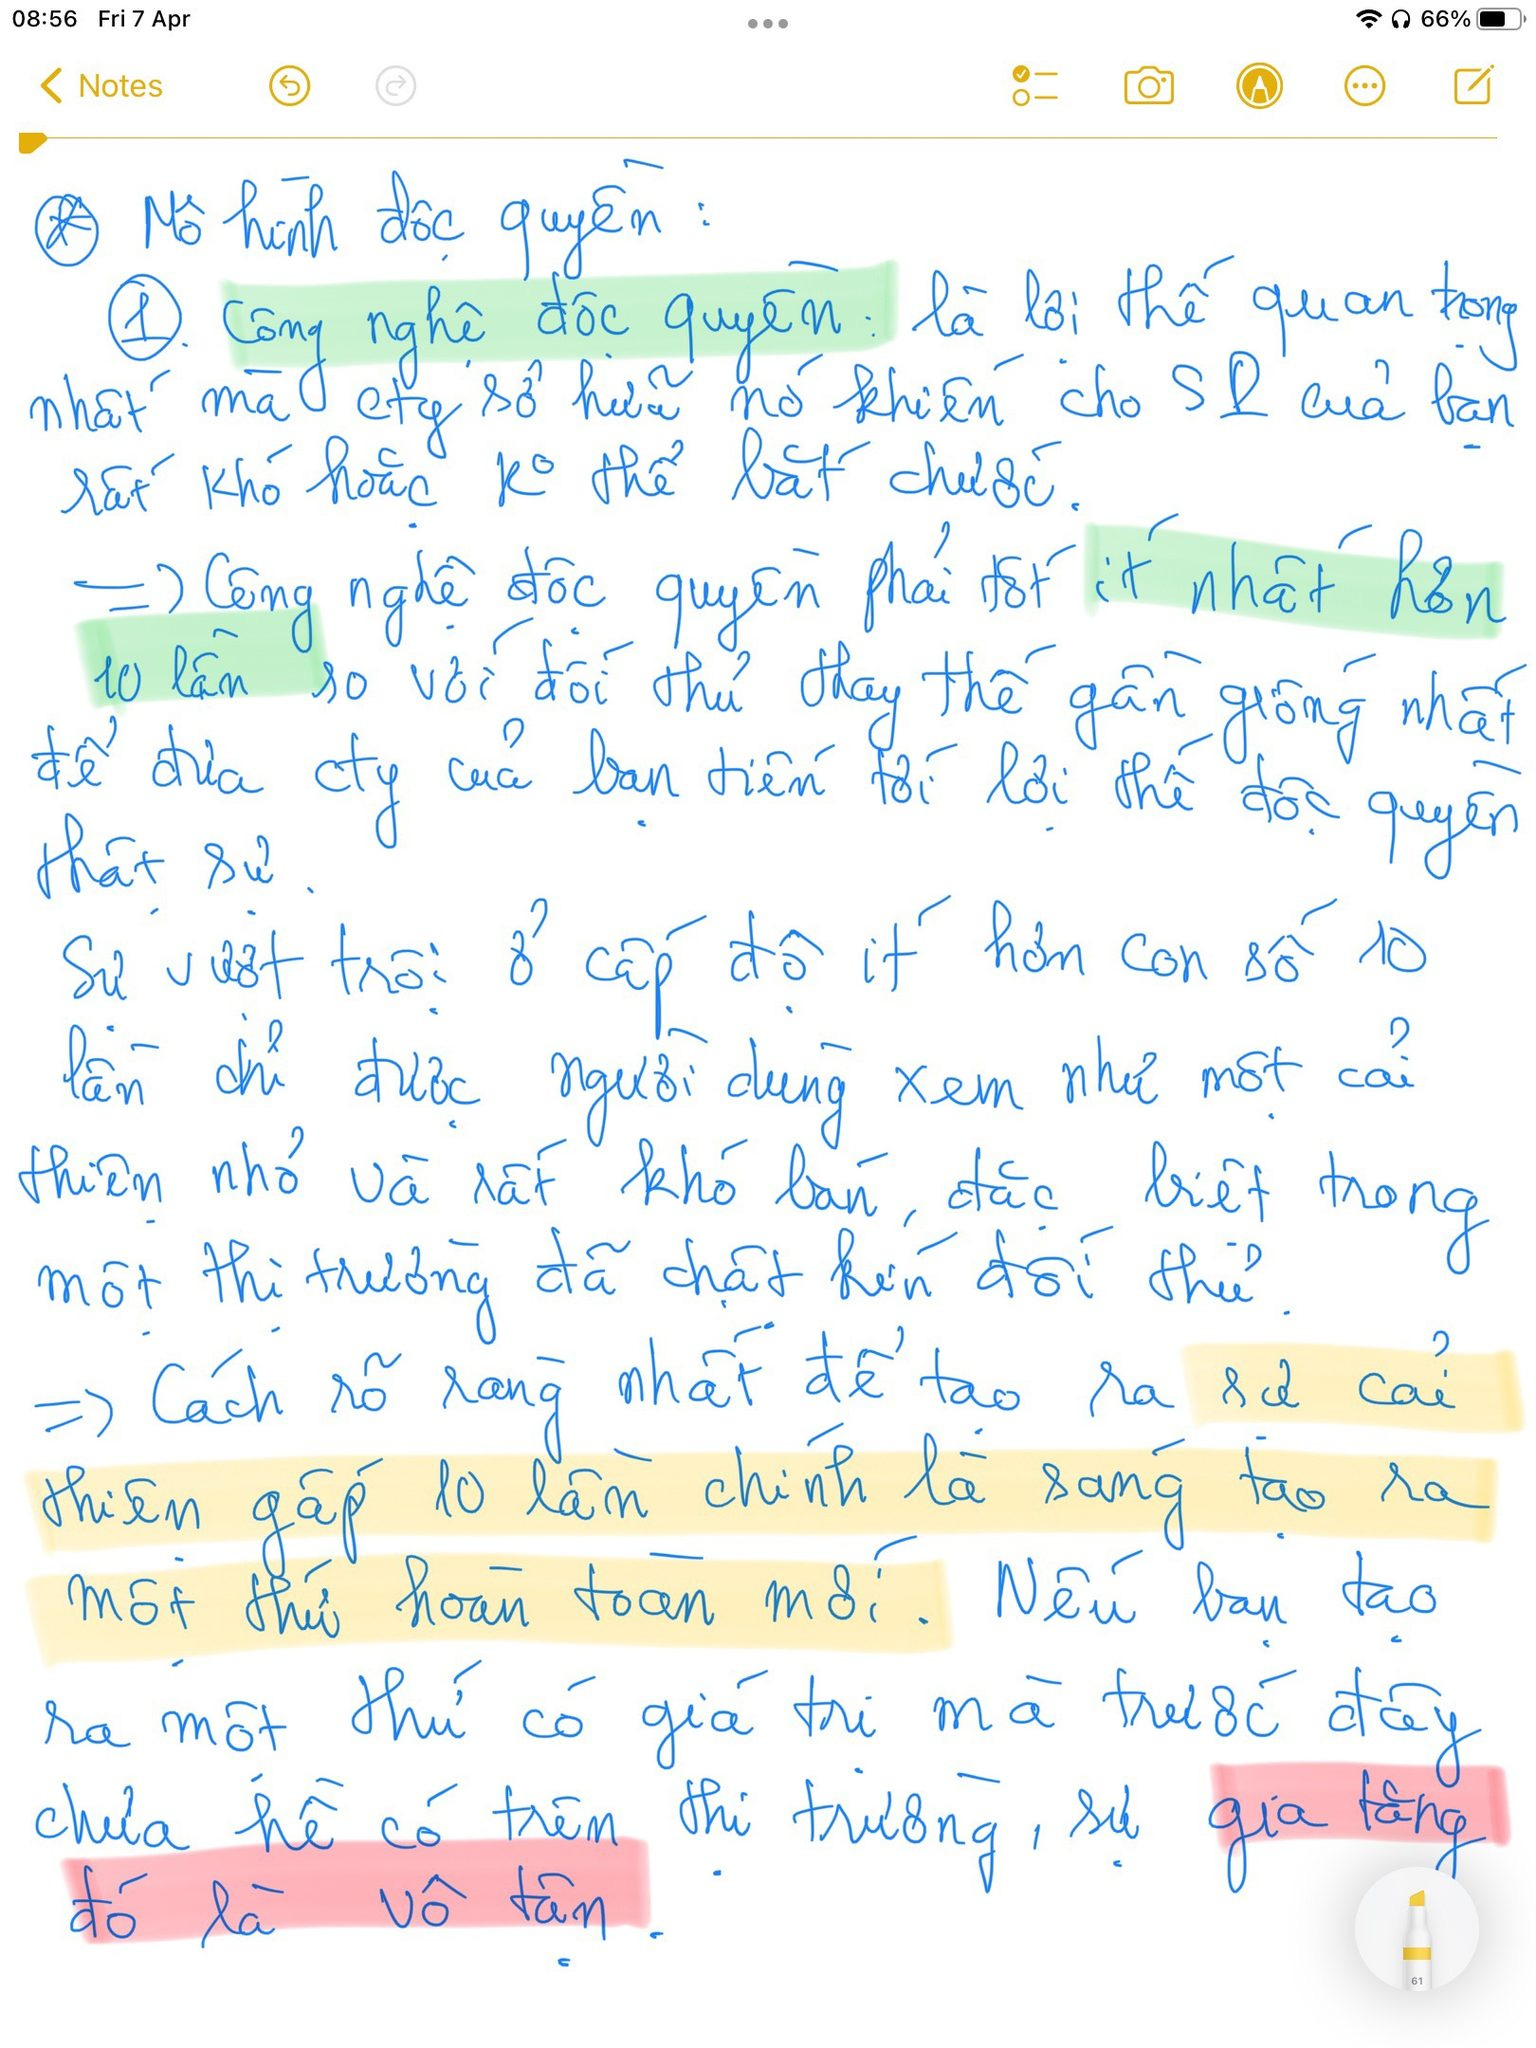 08:56 Fri 7 Apr 66%
Notes
* Mô hình độc quyền:
1. Công nghệ độc quyền: là lợi thế quan trọng
nhất mà cty sở hữu nó khiến cho SP của bạn
rất khó hoặc ko thể bắt chước.
=> Công nghệ độc quyền phải tốt ít nhất hơn
10 lần so với đối thủ thay thế gần giống nhất
để đưa cty của bạn tiến tới lợi thế độc quyền
thật sự.
Sự vượt trội ở cấp độ ít hơn con số 10
lần chỉ được người dùng xem như một cải
thiện nhỏ và rất khó bán, đặc biệt trong
một thị trường đã chật kín đối thủ.
=> Cách rõ ràng nhất để tạo ra sự cải
thiện gấp 10 lần chính là sáng tạo ra
một thứ hoàn toàn mới. Nếu bạn tạo
ra một thứ có giá trị mà trước đây
chưa hề có trên thị trường, sự gia tăng
đó là vô tận.
61